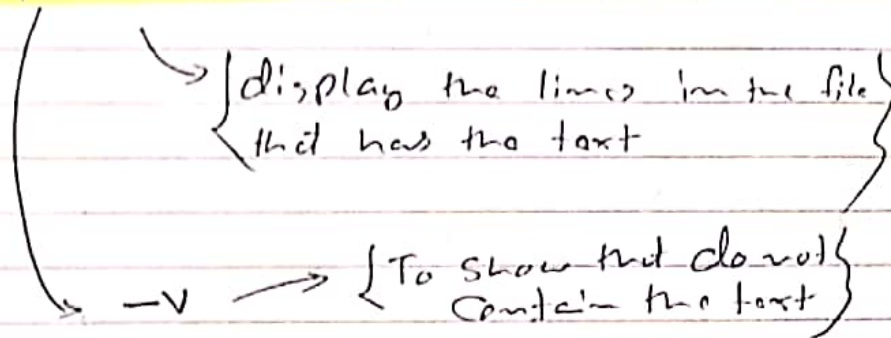 display the lines in the file
that has the text
-v → To show that do not
contain the text